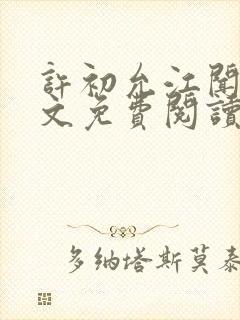 許初允江聞
文免費閱讀
多納塔斯莫泰